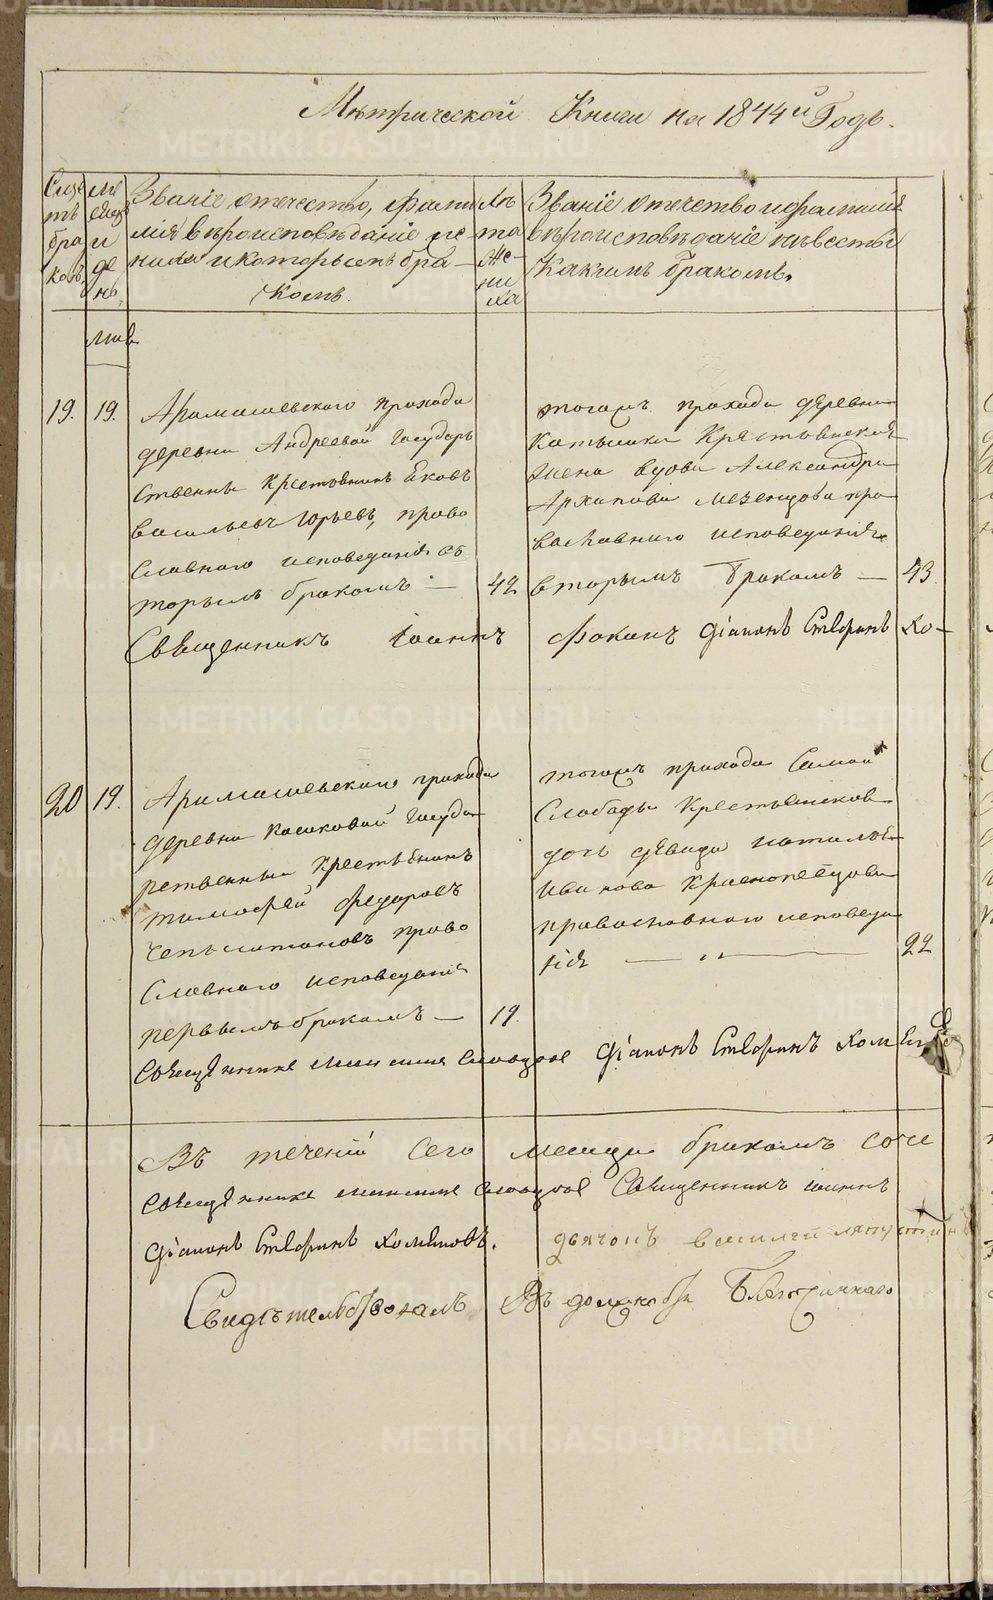 Метрической Книги на 1844й Годъ.
Счетъ браковъ
месецъ и день
Званіе отечество, фамилія вѣроисповѣданіе жениха и которымъ бракомъ.
Лѣта жениха
Званіе отечество и фамилія вѣроисповѣданіе невесты Какимъ бракомъ.
19. 19.
Арамашевского прихода
деревни Андреевой Государ
ственны крестьянинъ Ековъ
васильевъ Юрьевъ, право
славного исповеданія вт
торымъ бракомъ — 42
тогожъ прихода деревни
Крестьянская
жена вдова Александра
Архипова Мезенцова пра
вославного исповеданія
вторымъ бракомъ — 43
Священникъ Іоаннъ Фокинъ Діаконъ Стефанъ Хо-
20 19.
Арамашевского прихода
деревни Косиковой Государ
ственный крестьянинъ
тимофей Федоровъ
Чепчюгоновъ право
славного исповеданія
первымъ бракомъ — 19.
тогожъ прихода Самой
Слободы Крестьянсков
дочь девица наталья
Иванова Краснопевцова
православного исповеда
нія — „ — 22
Священникъ Діаконъ Стефанъ Хом
Въ теченіи Сего месеца бракомъ соче
Священникъ Священникъ Іоаннъ
Діаконъ Стефанъ Хомяковъ. дьячокъ василей
Свидѣтельствовалъ Въ должности Благочиннаго